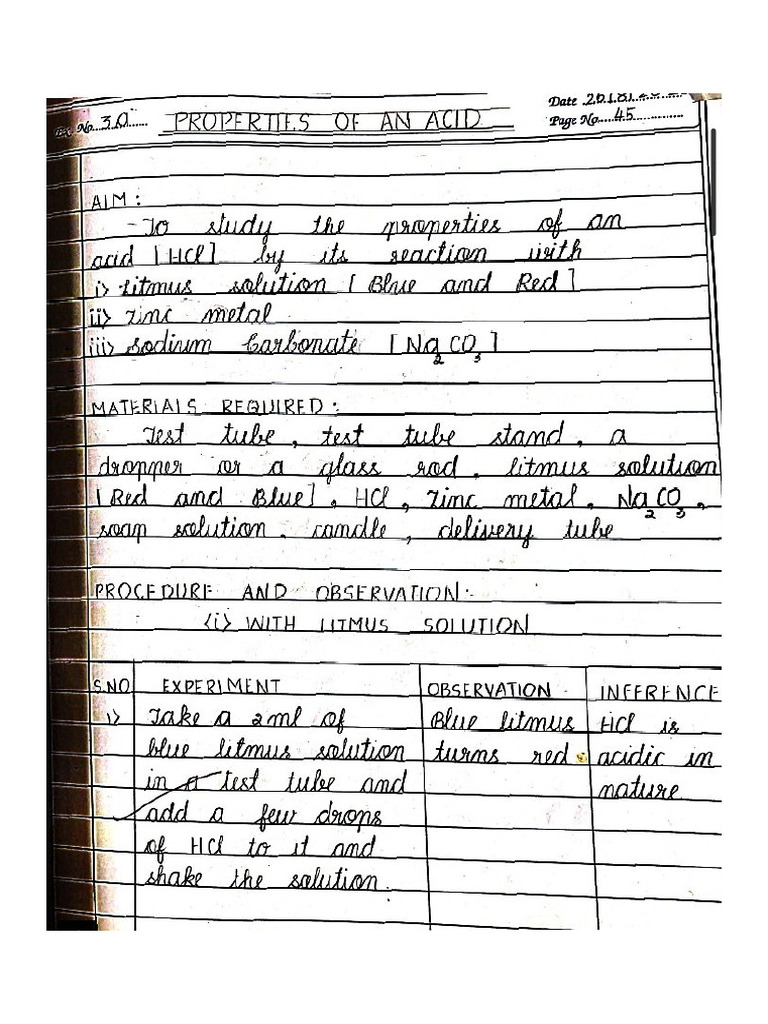 Ex. No. 3.a
PROPERTIES OF AN ACID
Date 26/8/
Page No. 45
AIM:
- To study the properties of an
acid [HCl] by its reaction with
i> Litmus solution [Blue and Red]
ii> zinc metal
iii> Sodium Carbonate [Na2CO3]
MATERIALS REQUIRED:
Test tube, test tube stand, a
dropper or a glass rod, litmus solution
[Red and Blue], HCl, zinc metal, Na2CO3,
soap solution, candle, delivery tube
PROCEDURE AND OBSERVATION:-
<i> WITH LITMUS SOLUTION
S.NO EXPERIMENT OBSERVATION INFERENCE
i> Take a 2ml of Blue litmus HCl is
blue litmus solution turns red. acidic in
in a test tube and nature
add a few drops
of HCl to it and
shake the solution.